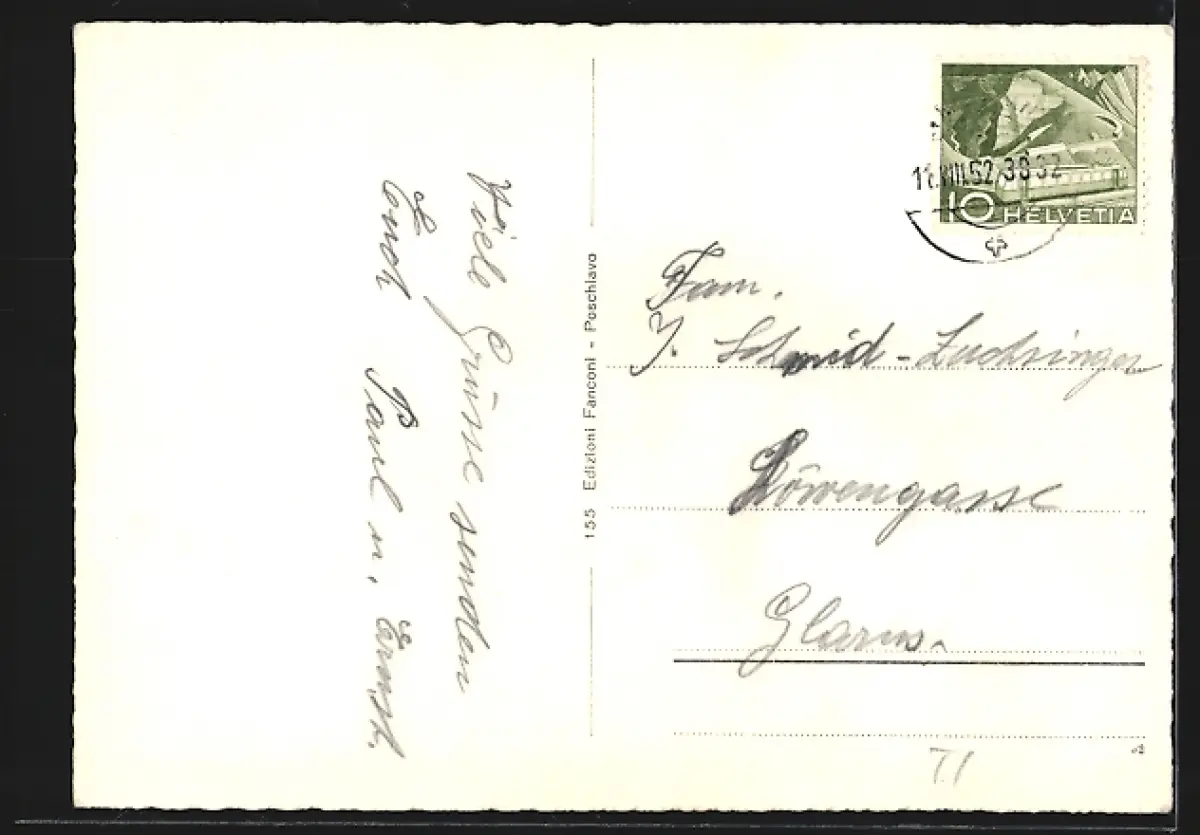 Viele Grüsse senden
Euch Paul u. Ernst.
155 Edizioni Fanconi - Poschiavo
10 HELVETIA
11.VIII.52
Fam.
J. Schmid-Luchsinger
Löwengasse
Glarus.